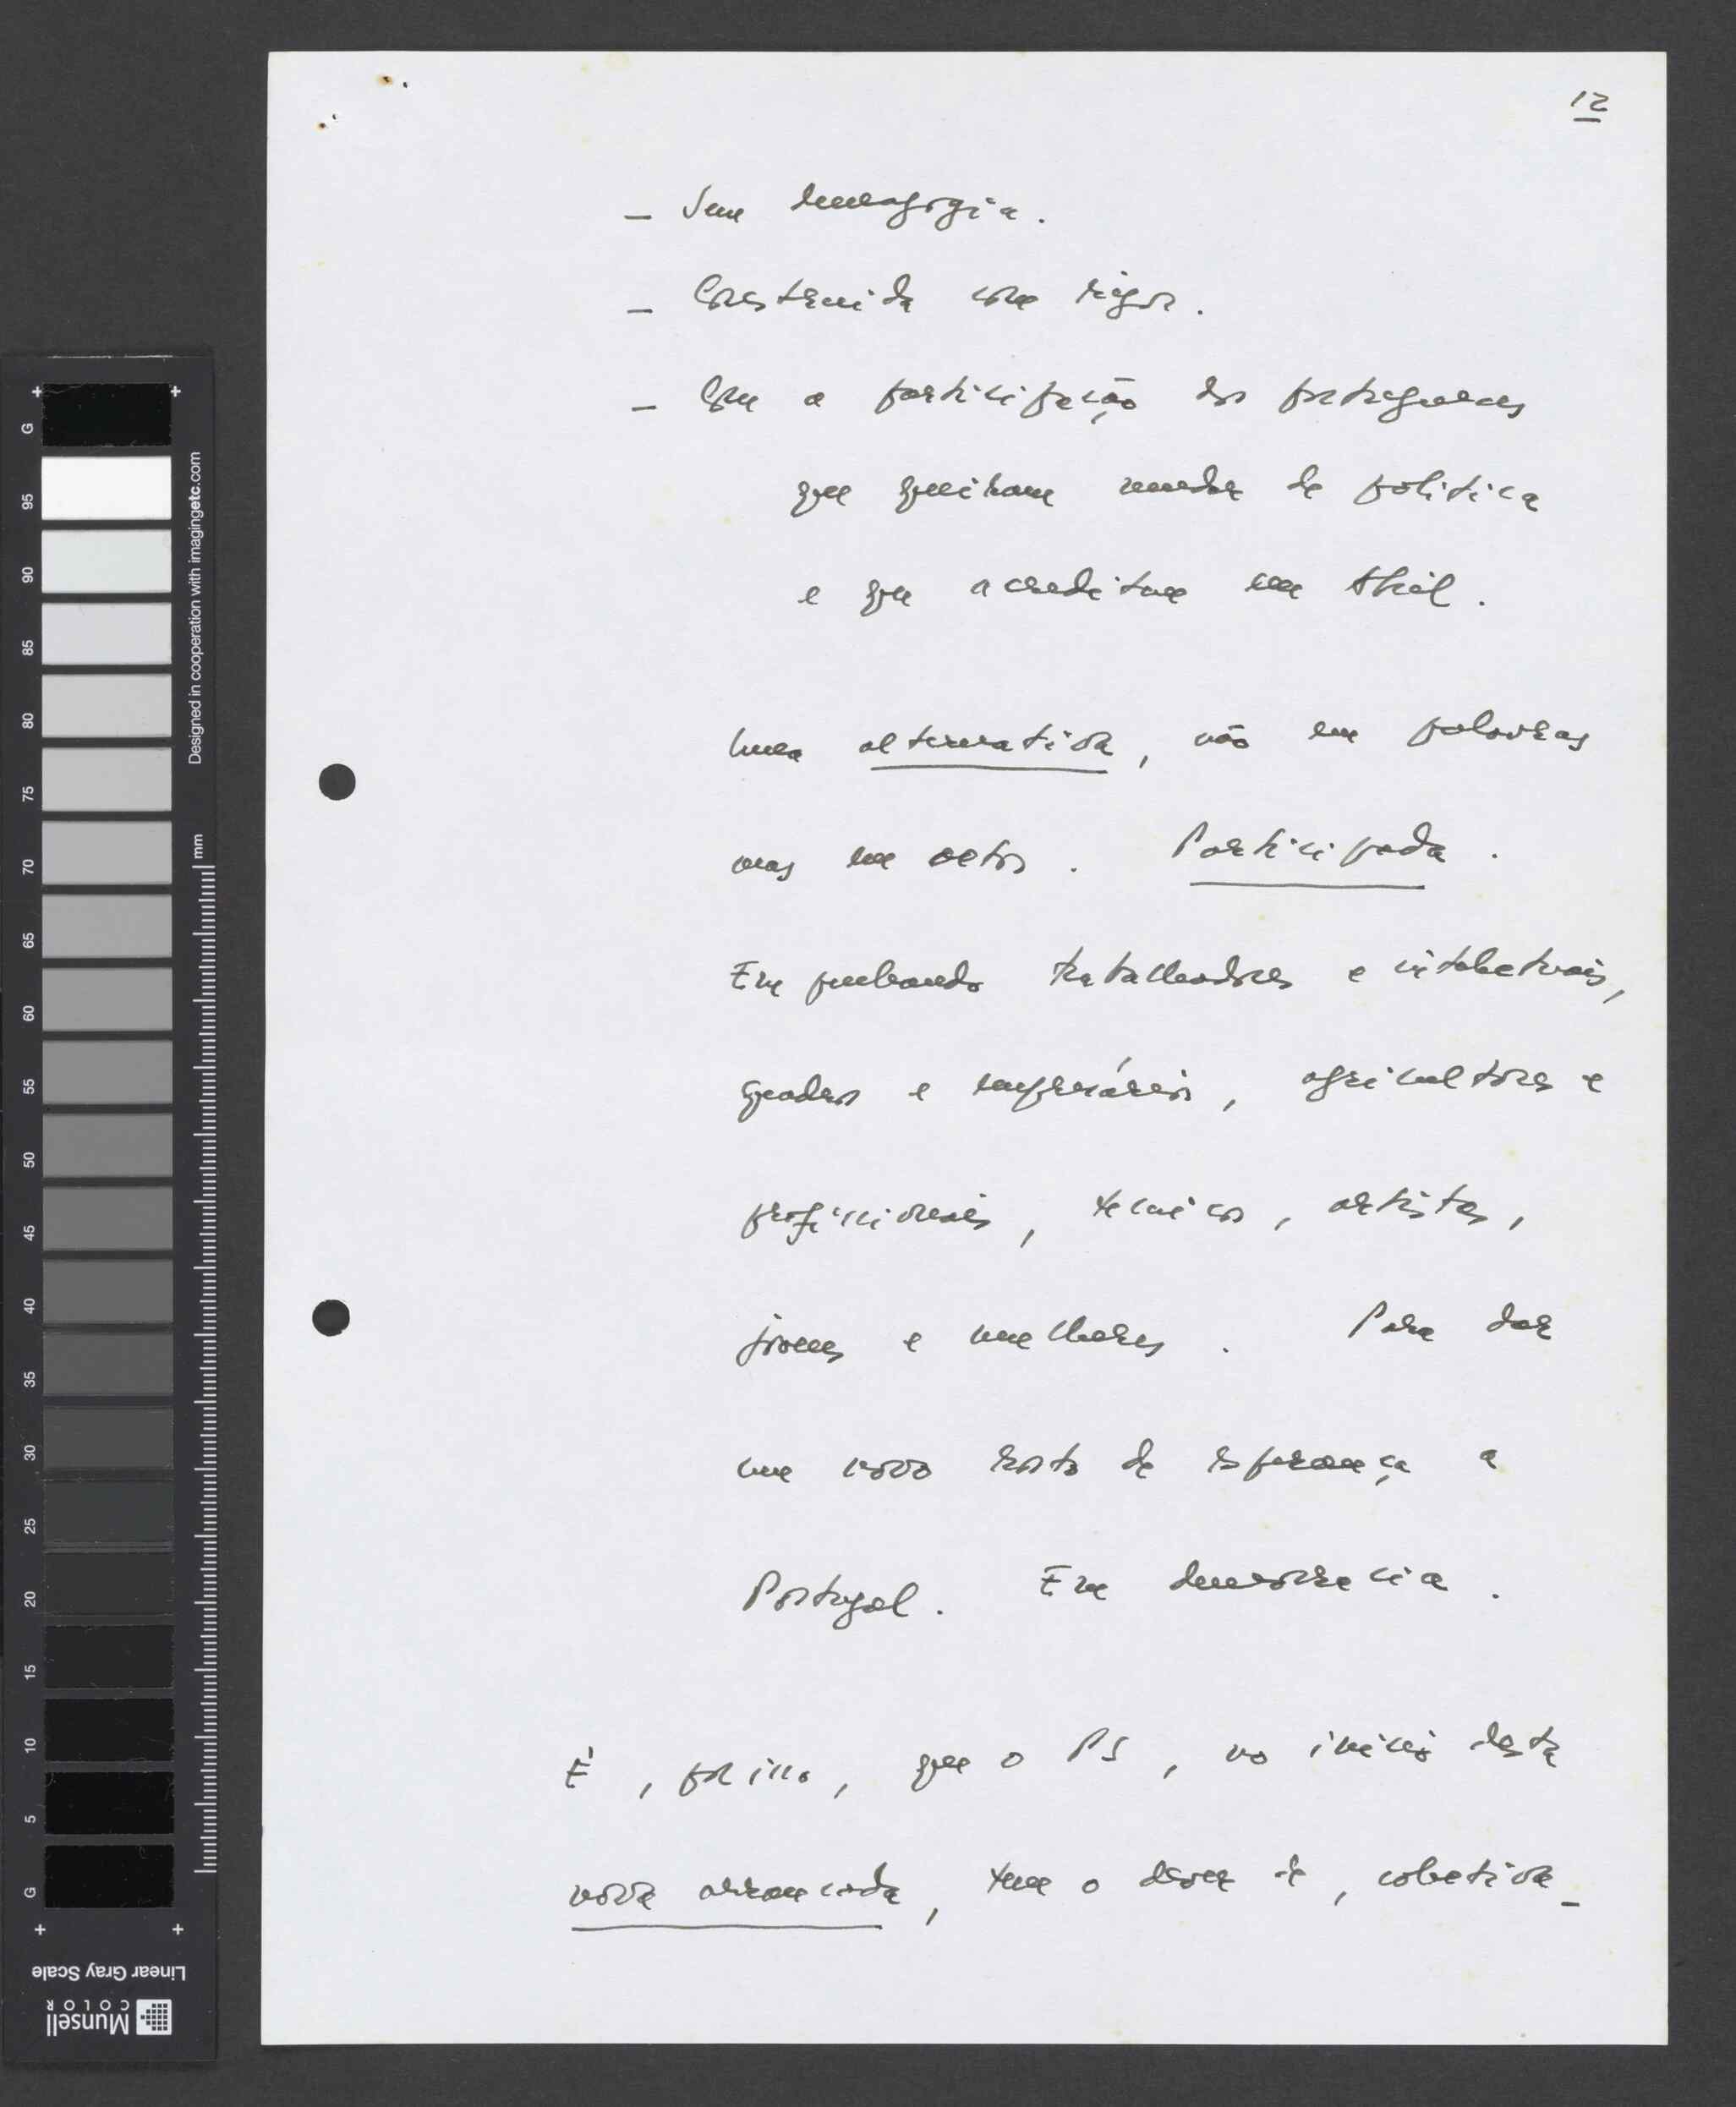 12
– Sem demagogia.
– Construida com rigor.
– Com a participação dos portugueses
que queiram mudar de politica
e que acreditam em Abril.
Uma alternativa, não em palavras
mas em actos. Participada.
Empenhando trabalhadores e intelectuais,
quadros e empresários, agricultores e
profissionais, tecnicos, artistas,
jovens e mulheres. Para dar
um novo rosto de esperança a
Portugal. Em democracia.
É, por isso, que o PS, no início desta
nova arrancada, tem o dever de, colectiva-
G 95 90 85 80 75 70 65 60 55 50 45 40 35 30 25 20 15 10 5 G
Designed in cooperation with imagingetc.com
mm
Linear Gray Scale
Munsell
COLOR